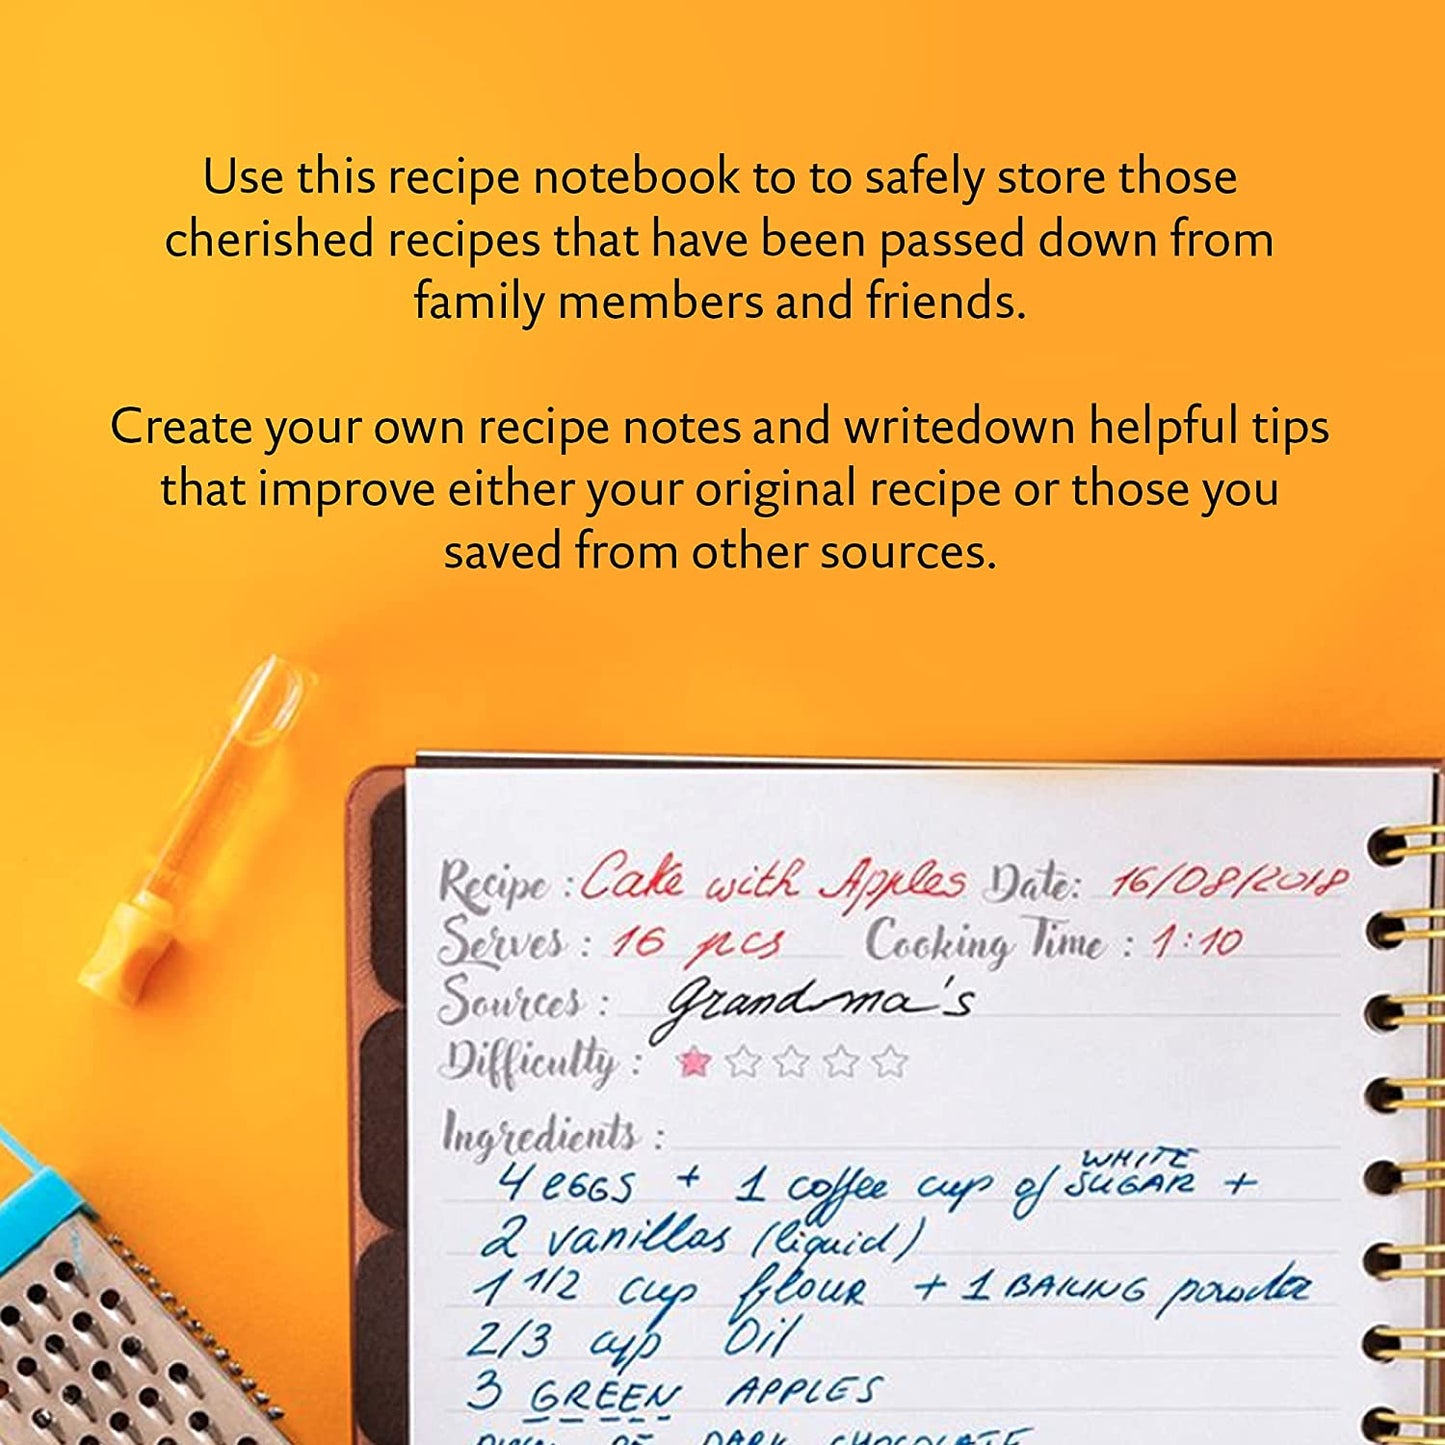 Use this recipe notebook to to safely store those
cherished recipes that have been passed down from
family members and friends.
Create your own recipe notes and writedown helpful tips
that improve either your original recipe or those you
saved from other sources.
Recipe : Cake with Apples Date: 16/08/2018
Serves : 16 pcs Cooking Time : 1:10
Sources : Grandma's
Difficulty :
Ingredients :
4 eGGS + 1 coffee cup of WHITE SUGAR +
2 vanillas (liquid)
1 1/2 cup flouR + 1 BAKING powder
2/3 cup Oil
3 GREEN APPLES
OF DARK CHOCOLATE